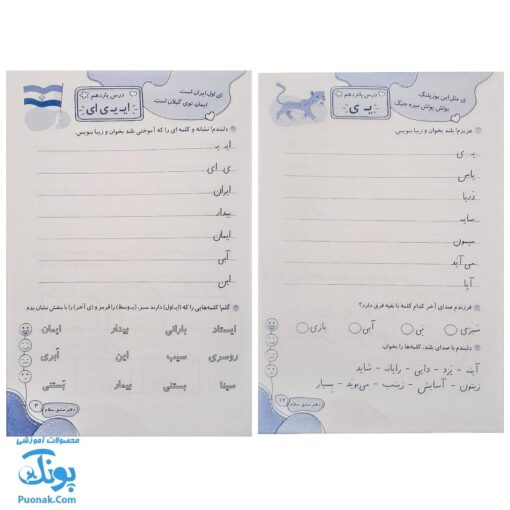 ی مثل این یوزپلنگ
یواش یواش میره جنگ
درس پانزدهم
یـ ی
عزیزم! بلند بخوان و زیبا بنویس.
یـ ی
یاس
دریا
سایه
میمون
می آید
آیا
فرزندم صدای آخر کدام کلمه با بقیه فرق دارد؟
سبزی
نِی
آبی
بازی
دلبندم با صدای بلند، کلمه‌ها را بخوان
آینه - یَزد - دایی - رایانه - شاید
زیتون - آسایش - زینب - می‌بوید - بسیار
۱۶
دفتر مشق سلام
ی اول ایران است.
ایمان توی گیلان است.
درس یازدهم
ایـ یـ ی ای
دلبندم! نشانه و کلمه ای را که آموختی بلند بخوان و زیبا بنویس.
ایـ یـ
ی ای
ایران
بیدار
ایمان
آبی
این
گلم! کلمه‌هایی را که (ایـ اول) دارند سبز، (یـ وسط) را قرمز و (ی آخر) را با بنفش نشان بده.
ایستاد بارانی بیدار ایمان
روسری سیب این اَبری
سینا بستنی بیمار بَستنی
۳
دفتر مشق سلام
محصولات آموزشی
پونک
Puonak.Com